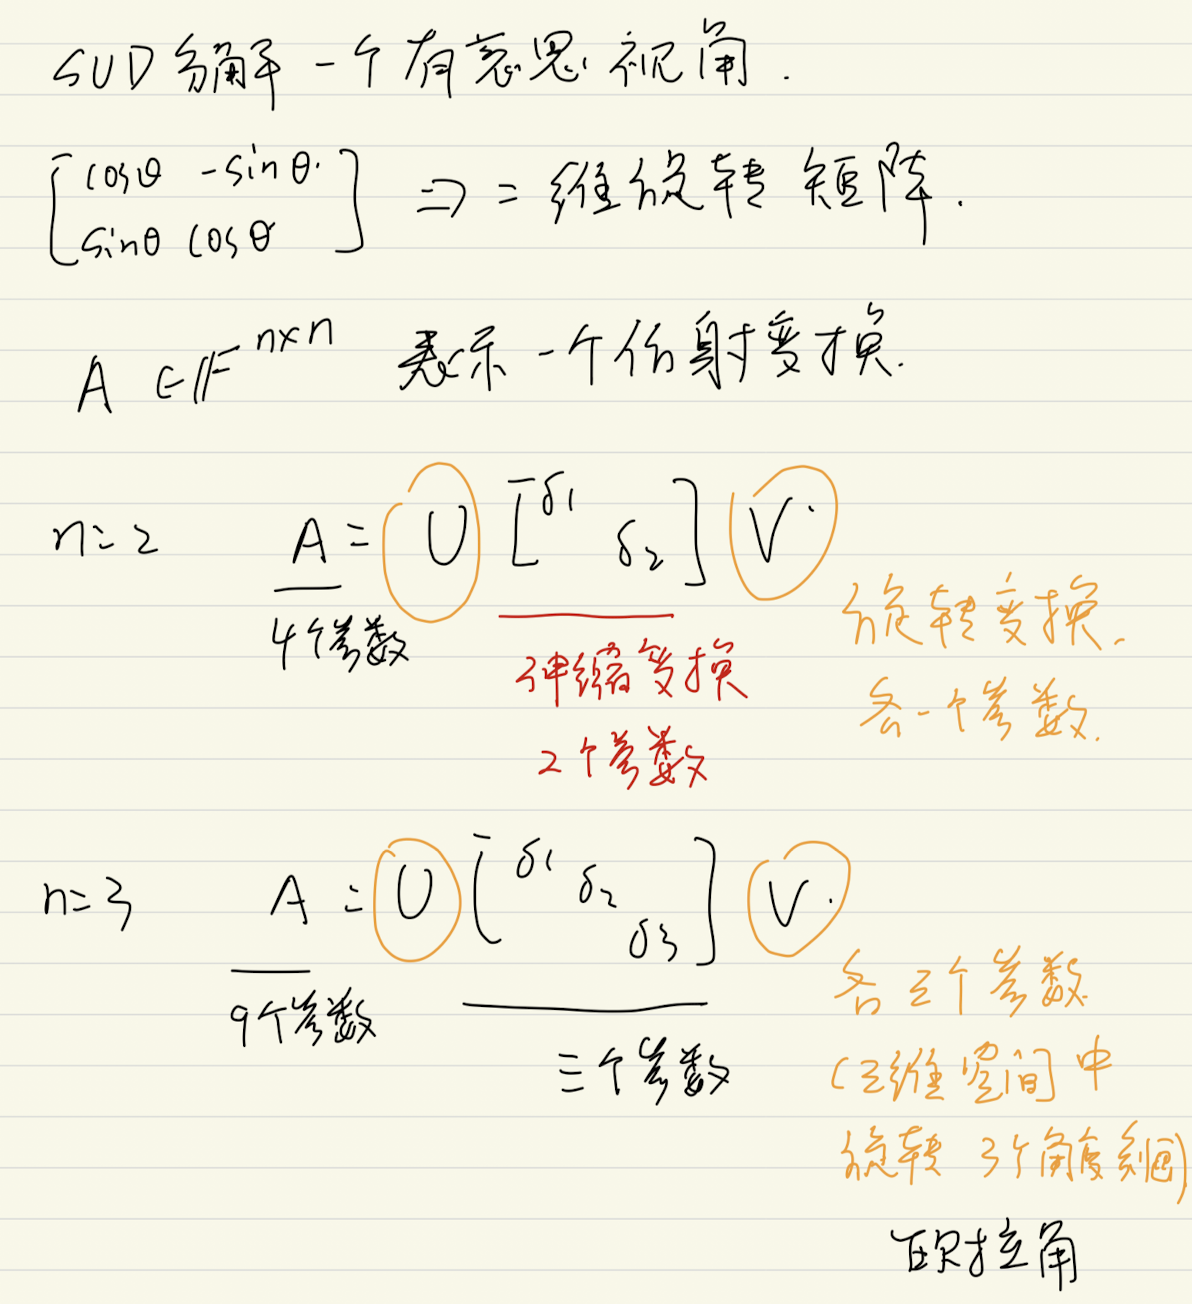 SUD分解一个有意思视角.
[cosθ -sinθ
sinθ cosθ] => 二维旋转矩阵.
A ∈ F^{n×n} 表示一个仿射变换.
n=2 A = U [δ1 δ2] V
4个参数 伸缩变换 旋转变换.
2个参数 各一个参数.
n=3 A = U [δ1 δ2 δ3] V.
9个参数 三个参数 各三个参数
(三维空间中
旋转 3个角度刻画)
欧拉角